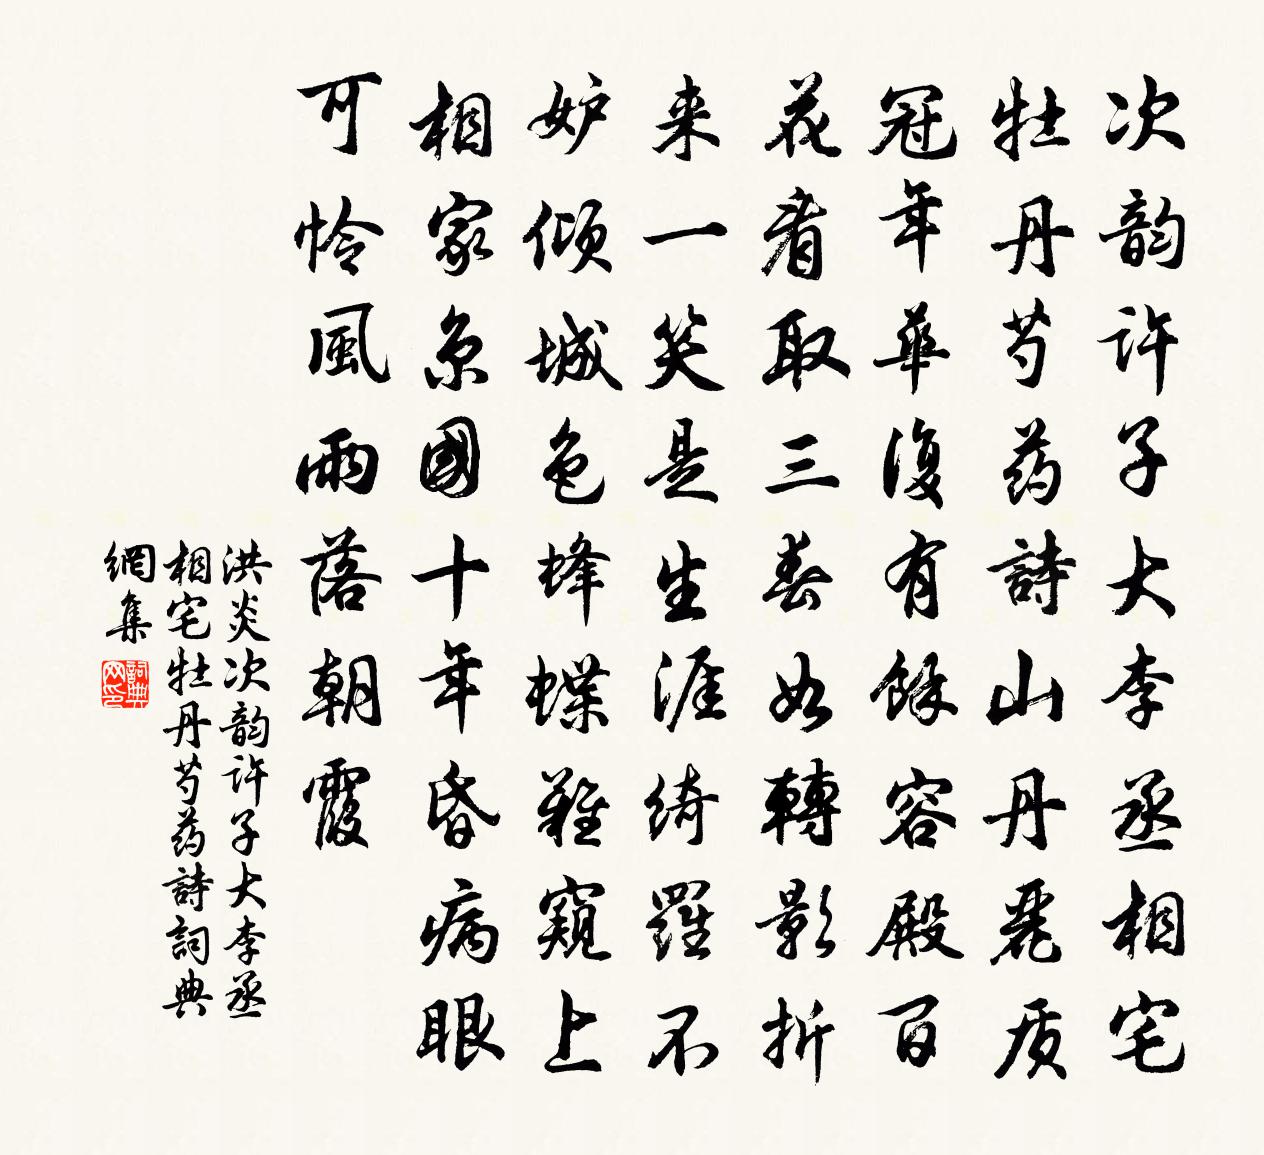 次韵许子大李丞相宅
牡丹芍药詩山丹麗质
冠年華復有餘容殿百
花看取三春如轉影折
来一笑是生涯綺羅不
妒倾城色蜂蝶難窺上
相家京國十年昏病眼
可怜風雨落朝霞
洪炎次韵许子大李丞
相宅牡丹芍药詩詞典
網集